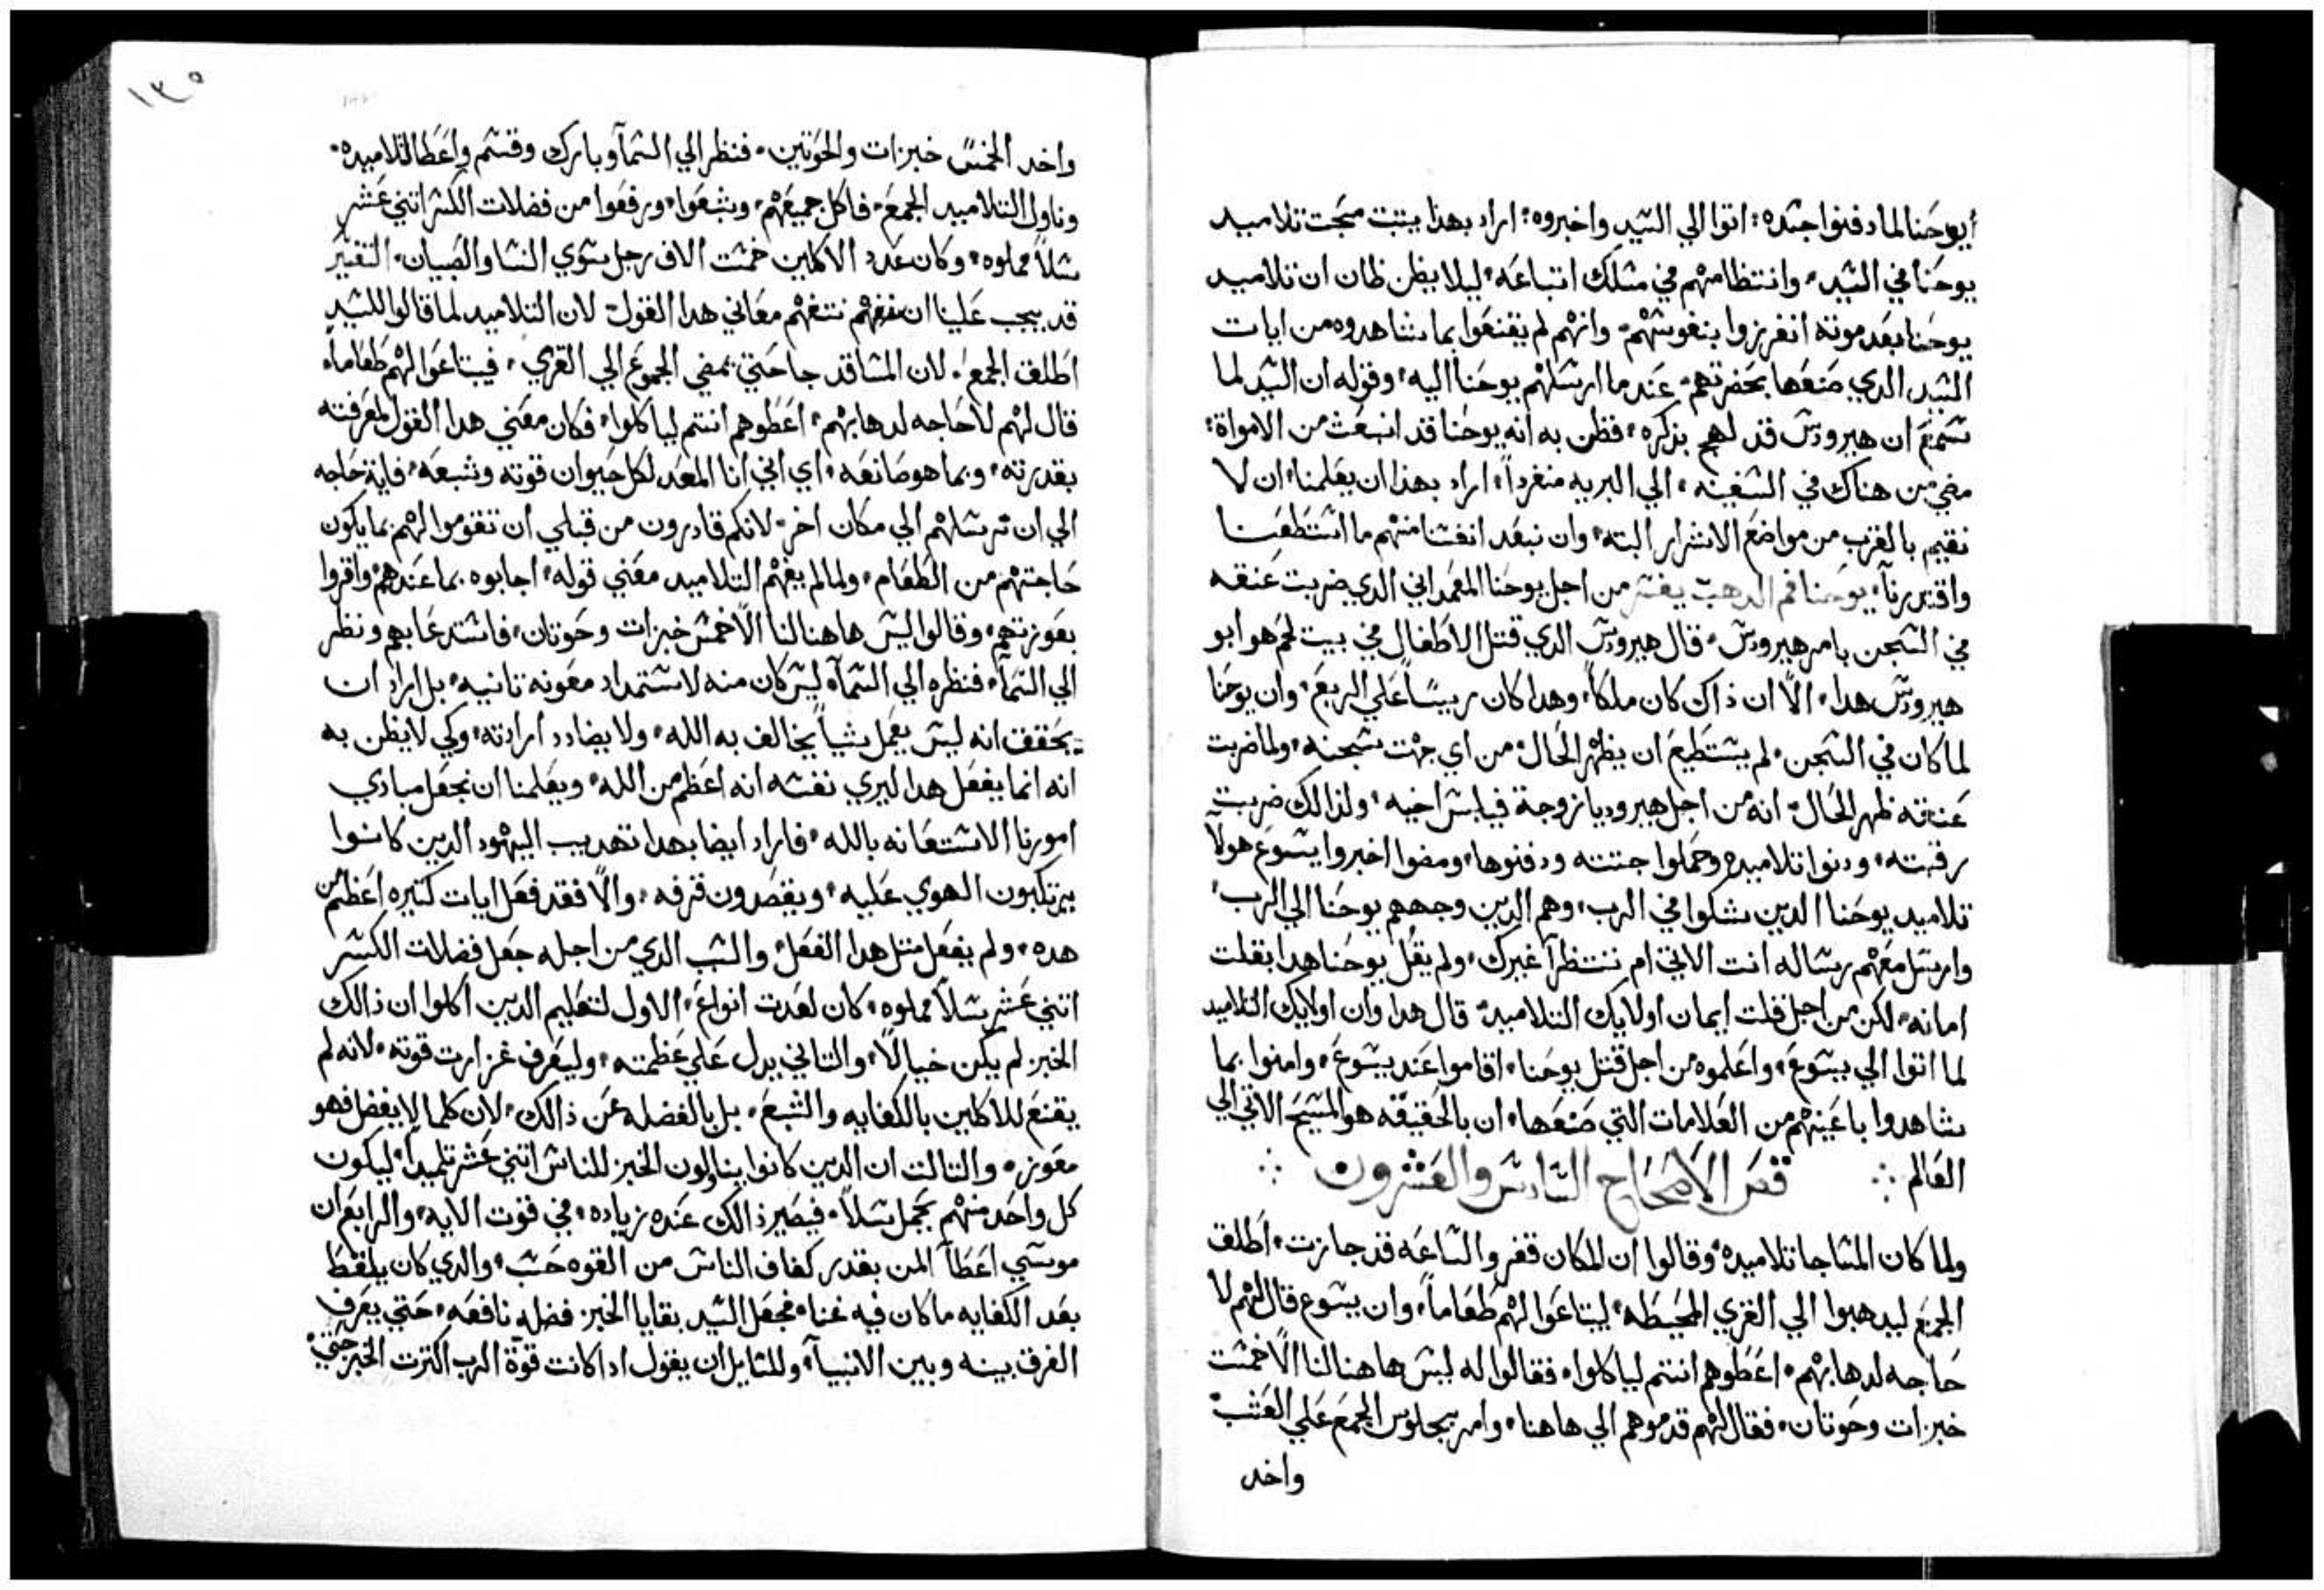 أيوحنا لما دفنوا جسَده: اتوا الي السَيد واخبروه: اراد بهذا يتبت محَبت تلاميد
يوحَنا في السَيد، وانتظامهم في مسَلك اتباعَه، ليلا يظن ظان ان تلاميد
يوحَنا بعَد موته انفرزوا بنفوسَهم، وانهم لم يقنعَوا بما شاهدوه من ايات
السَيد الدي صَنعَها بحَضرتهم، عَند ما ارسَلهم يوحَنا اليه، وقوله ان السَيد لما
سَمع ان هيرودسَ قد لهج بذكره، فظن به انه يوحَنا قد انبعَث من الامواة:
مضي من هناك في السَفينه، الي البريه منفرداً، اراد بهذا ان يعَلمنا، ان لا
نقيم بالقرب من مواضعَ الاشرار البته، وان نبعَد انفسَنا منهم ما اسَتطعَنا
واقتدرنآ، يوحَنا فم الدهب يفسَر من اجل يوحَنا المعَمداني الدي ضربت عَنقه
في السَجن بامر هيرودسَ، قال هيرودسَ الدي قتل الاطفال في بيت لحَم هو ابو
هيرودسَ هدا، الاّ ان ذاك كان ملكاً، وهدا كان رييسًا عَلي الربعَ، وان يوحَنا
لما كان في السَجن، لم يسَتطيعَ ان يظهر الحَال، من اي جهت سَجنه، ولما ضربت
عَنقه ظهر الحَال، انه من اجل هيروديا زوجة فيلبسَ اخيه، ولذالك ضربت
رقبته، ودنوا تلاميده وحَملوا جتته ودفنوها، ومضوا اخبروا يسَوعَ هولآ
تلاميد يوحَنا الدين شكوا في الرب، وهم الدين وجههم يوحَنا الي الرب،
وارسَل معَهم رسَاله انت الاتي ام ننتظر آغيرك، ولم يقُل يوحَنا هدا بقلت
امانه، لكن من اجل قلت ايمان اولايك التلاميد، قال هدا وان اولايك التلاميد
لما اتوا الي يسَوعَ، واعَلموه من اجل قتل يوحَنا، اقاموا عَند يسَوعَ، وامنوا بما
شاهدوا باعَينهم من العَلامات التي صَنعَها، ان بالحَقيقه هو المسَيحَ الاتي الي
العَالم ∴ فصَ الاصَحَاح السَادسَ والعَشرون ∴
ولما كان المسَا جا تلاميده، وقالوا ان المكان قفر والسَاعَه قد جازت، اطلق
الجمعَ ليدهبوا الي القري المحَيطه، ليبتاعَوا لهم طعَاماً، وان يسَوع قال لهم لا
حَاجه لدهابهم، اعَطوهم انتم لياكلوا، فقالوا له ليسَ هاهنا لنا الاّ خمسَت
خبزات وحَوتان، فقال لهم قدموهم الي هاهنا، وامر بجلوسَ الجمعَ عَلي العَشب،
واخد
١٣٥
واخد الخمسَ خبزات والحَوتين، فنظر الي السَمآ وبارك وقسَم واعَطا لتلاميده،
وناول التلاميد الجمعَ، فاكل جميعَهم، وشبعَوا، ورفعَوا من فضلات الكسَر اتني عَشر
سَلاً مملوه، وكان عَدد الاكلين خمسَت الاف رجل سَوي النسَا والصَبيان، التفسَير
قد يجب عَلينا ان نتفهم معَاني هدا القول، لان التلاميد لما قالوا للسَيد
اطلق الجمعَ، لان المسَا قد جا حَتي يمضي الجموعَ الي القري، فيبتاعَوا لهم طعَاماً،
قال لهم لا حَاجه لدهابهم، اعَطوهم انتم لياكلوا، فكان معَني هدا القول لمعَرفته
بقدرته، وبما هو صَانعَه، اي اني انا المعَد لكل حَيوان قوته وشبعَه، فاية حَاجه
الي ان ترسَلهم الي مكان اخر، لانكم قادرون من قبلي ان تقوموا لهم بما يكون
حَاجتهم من الطعَام، ولما لم يفهم التلاميد معَني قوله، اجابوه بما عَندهم، واقروا
بعَوزتهم، وقالوا ليسَ هاهنا لنا الاّ خمسَ خبزات وحَوتان، فاسَتدعَا بهم ونظر
الي السَمآ، فنظره الي السَمآه ليسَ كان منه لاسَتمداد معَونه تانيه، بل اراد ان
يحَقق انه ليسَ يعَمل شياً يخالف به الله، ولا يضادد ارادته، وكي لا يظن به
انه انما يفعَل هدا ليري نفسَه انه اعَظم من الله، ويعَلمنا ان نجعَل مبادي
امورنا الاسَتعَانه بالله، فاراد ايضا بهدا تهديب اليهود الدين كانوا
يرتكبون الهوي عَليه، ويقصَدون قرفه، والاّ فقد فعَل ايات كتيره اعَظم من
هده، ولم يفعَل متل هدا الفعَل، والسَبب الدي من اجله جعَل فضلات الكسَر
اتني عَشر سَلاً مملوه، كان لعَدت انواعَ، الاول لتعَليم الدين اكلوا ان ذالك
الخبز لم يكن خيالاً، والتاني يدل عَلي عَظمته، وليعَرف غزارت قوته، لانه لم
يقنعَ للاكلين بالكفايه والشبعَ، بل بالفضله عَن ذالك، لان كلما لا يفضل فهو
معَوز، والتالت ان الدين كانوا يناولون الخبز للناسَ اتني عَشر تلميداً، ليكون
كل واحَد منهم يحَمل سَلاً، فيصَير ذالك عَنده زياده، في قوت الايه، والرابعَ ان
موسَي اعَطآ المن بقدر كفاف الناسَ من القوه حَسَب، والدي كان يلقط
بعَد الكفايه ما كان فيه غنا، فجعَل السَيد بقايا الخبز فضله نافعَه، حَتي يعَرف
الفرق بينه وبين الانبيآ، وللسَايل ان يقول ادا كانت قوّة الرب اكترت الخبز حَتي